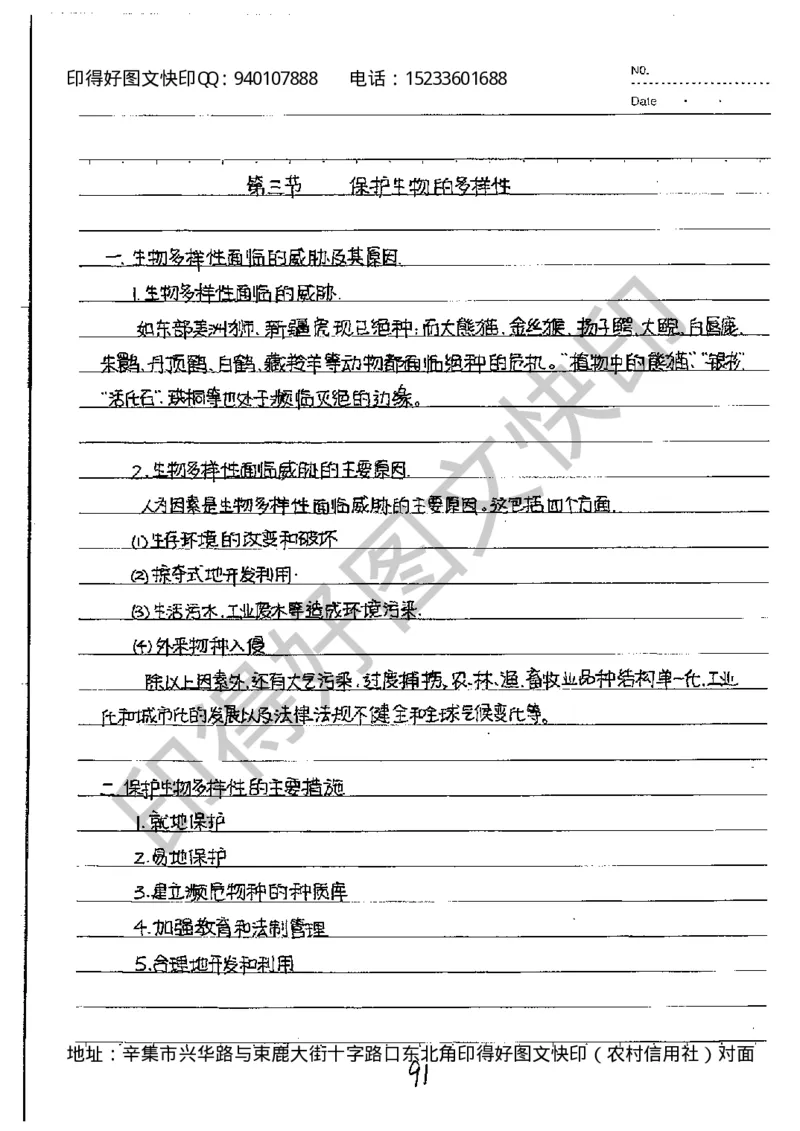 印得好图文快印QQ：940107888 电话：15233601688
NO.
Date
第三节 保护生物的多样性
一.生物多样性面临的威胁及其原因.
1.生物多样性面临的威胁.
如东部美洲狮、新疆虎现已绝种;而大熊猫、金丝猴、扬子鳄、大鲵、白唇鹿、
朱鹮、丹顶鹤、白鹤、藏羚羊等动物都面临绝种的危机。“植物中的熊猫”、“银杉”.
“活化石”.珙桐等也处于濒临灭绝的边缘。
2.生物多样性面临威胁的主要原因.
人为因素是生物多样性面临威胁的主要原因。这包括四个方面.
(1)生存环境的改变和破坏
(2)掠夺式地开发利用.
(3)生活污水.工业废水等造成环境污染.
(4)外来物种入侵
除以上因素外,还有大气污染,过度捕捞,农.林.渔.畜牧业品种结构单一化,工业
化和城市化的发展以及法律法规不健全和全球气候变化等。
二.保护生物多样性的主要措施
1.就地保护
2.易地保护
3.建立濒危物种的种质库
4.加强教育和法制管理
5.合理地开发和利用
印得好图文快印
地址：辛集市兴华路与束鹿大街十字路口东北角印得好图文快印（农村信用社）对面
91